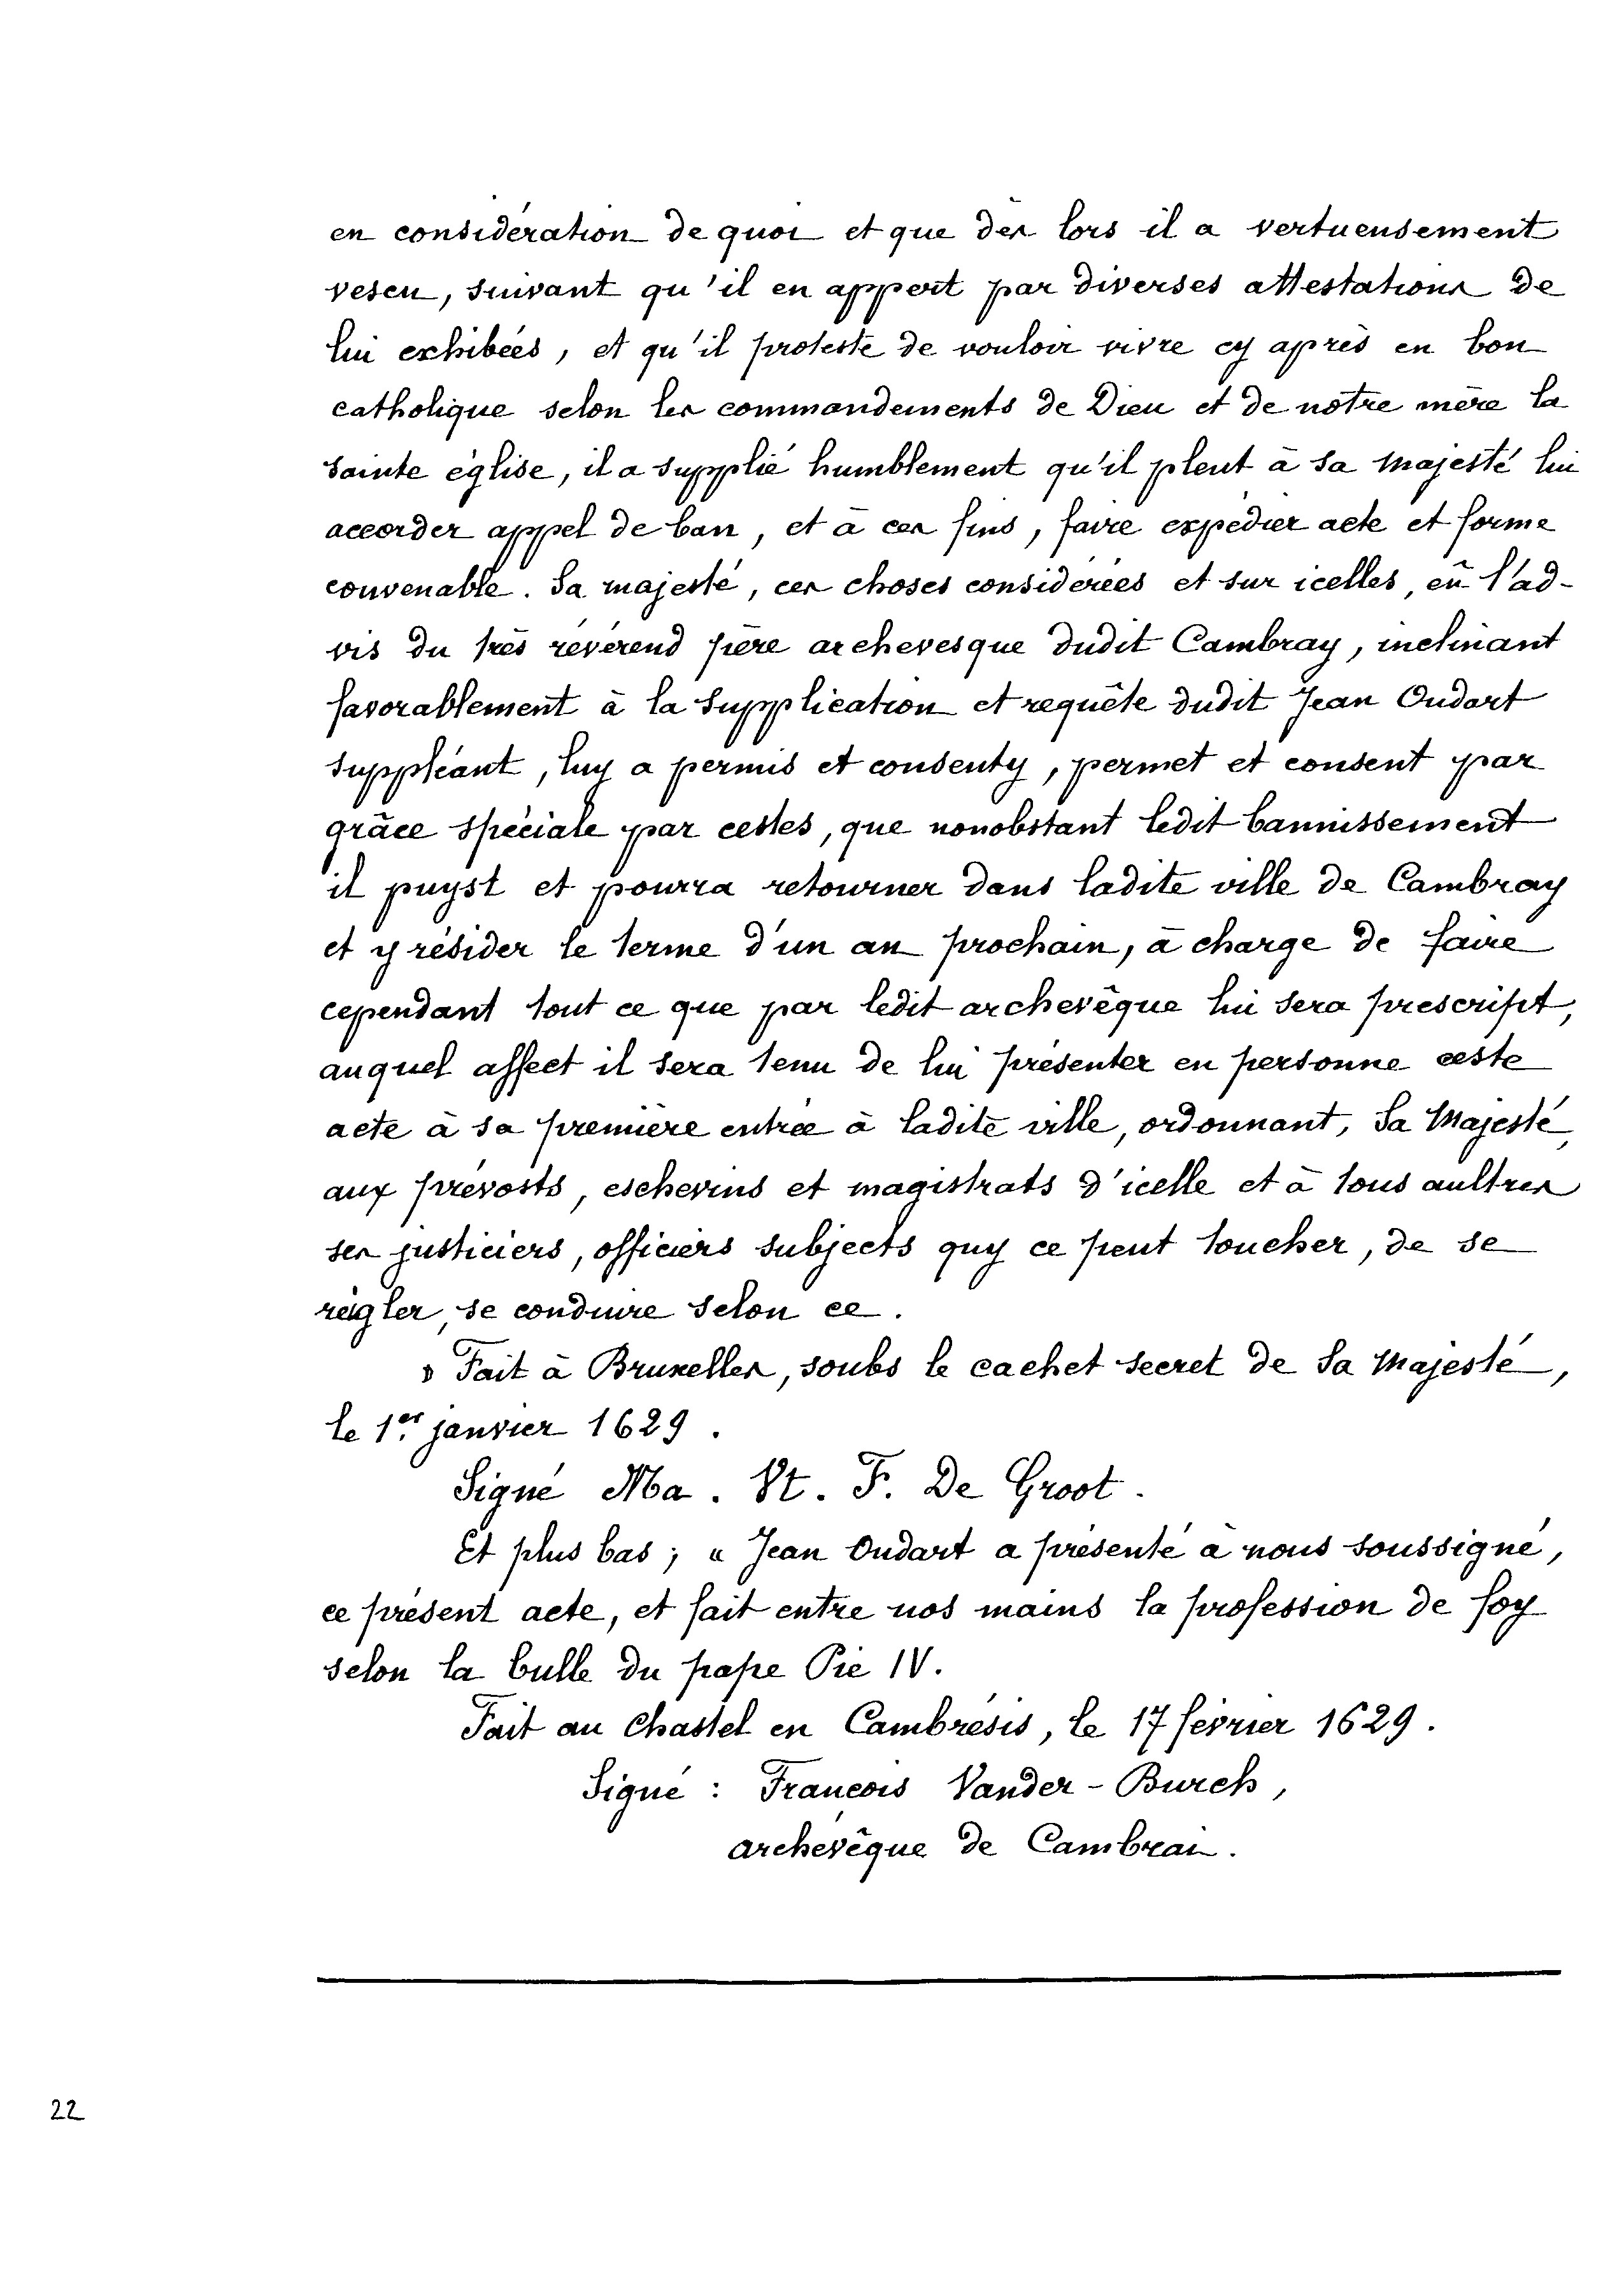 en considération de quoi et que dès lors il a vertueusement
vescu, suivant qu'il en appert par diverses attestations de
lui exhibées, et qu'il proteste de vouloir vivre cy après en bon
catholique selon les commandements de Dieu et de nôtre mère la
sainte église, il a supplié humblement qu'il pleut à sa Majesté lui
accorder appel de ban, et à ces fins, faire expédier acte et forme
convenable. Sa majesté, ces choses considérées et sur icelles, eû l'ad-
vis du très révérend père archevesque dudit Cambray, inclinant
favorablement à la supplication et requête dudit Jean Oudart
suppléant, luy a permis et consenty, permet et consent par
grâce spéciale par cestes, que nonobstant ledit bannissement
il puyst et pourra retourner dans ladite ville de Cambray
et y résider le terme d'un an prochain, à charge de faire
cependant tout ce que par ledit archevêque lui sera prescript,
auquel affect il sera tenu de lui présenter en personne ceste
acte à sa première entrée à ladite ville, ordonnant, Sa Majesté,
aux prévosts, eschevins et magistrats d'icelle et à tous aultres
ses justiciers, officiers subjects quy ce peut toucher, de se
régler, se conduire selon ce.
» Fait à Bruxelles, soubs le cachet secret de Sa Majesté,
le 1er janvier 1629.
Signé Ma. Vt. F. De Groot.
Et plus bas; « Jean Oudart a présenté à nous soussigné,
ce présent acte, et fait entre nos mains la profession de foy
selon la bulle du pape Pie IV.
Fait au Chastel en Cambrésis, le 17 février 1629.
Signé : François Vander-Burch,
archevêque de Cambrai.
22